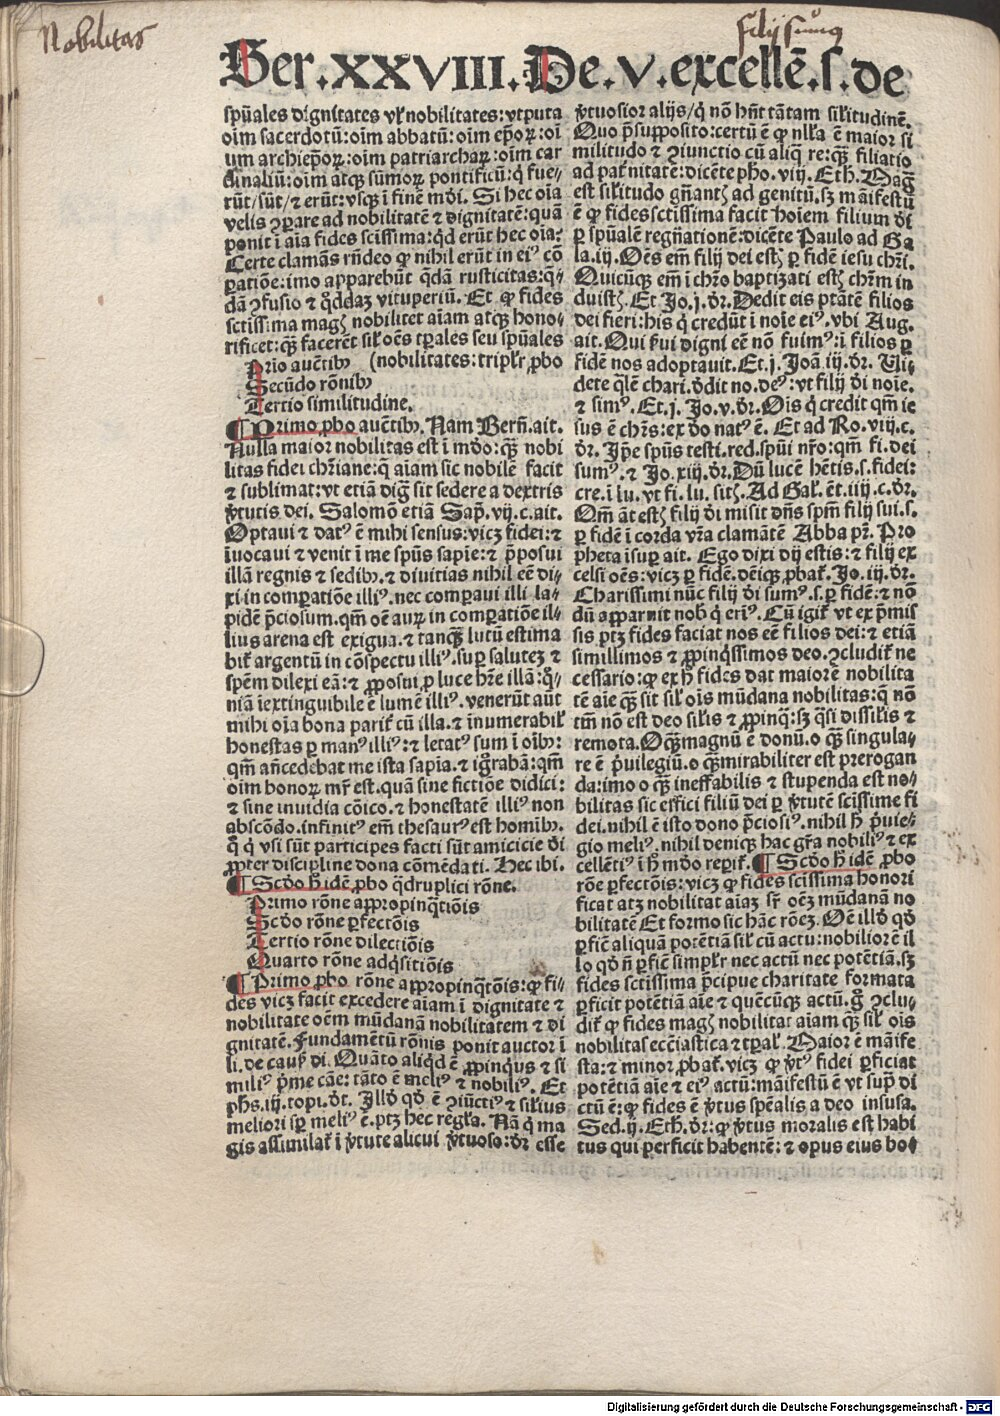 Nobilitas
filij sumus
Ser.XXVIII.De.v.excellē.s.de
spūales dignitates vl' nobilitates: vtputa
oīm sacerdotū: oīm abbatū: oīm ep̄oꝝ: oī
um archiep̄oꝝ: oīm patriarchaꝝ: oīm car
dinaliū: oīm atqꝫ sūmoꝝ pontificū: q̇ fue⸗
rūt/sūt/⁊ erūt: vsqꝫ ī finē mūdi. Si hec oīa
velis ꝯparare ad nobilitatē ⁊ dignitatē: quā
ponit ī aīa fides sctissima: qd̓ erūt hec oīa?
Certe clamās rn̄deo ꝙ nihil erūt in eiꝰ cō
pationē: imo apparebūt q̄dā rusticitas: q̄⸗
dā ꝯfusio ⁊ q̊ddaꝫ vituperiū. Et ꝙ fides
sctissima magꝭ nobilitet aīam atqꝫ hono⸗
rificet: qꝫ̄ facerēt sil' oēs tꝑales seu spūales
Prīo auctībꝰ (nobilitates: tripl'r ꝓbo
Secūdo rōnibꝰ
Tertio similitudine.
¶ Primo ꝓbo auctībꝰ. Nam Bern̄. ait.
Nulla maior nobilitas est ī mūdo: qꝫ̄ nobi
litas fidei chr̄iane: q̄ aīam sic nobilē facit
⁊ sublimat: vt etiā diḡ sit sedere a dextris
v̓tutis dei. Salomō etiā Sap̄. vij. c. ait.
Optaui ⁊ datꝰ ē mihi sensus: vicꝫ fidei: ⁊
īuocaui ⁊ venit ī me spūs sapīe: ⁊ p̄posui
illā regnis ⁊ sedibꝰ. ⁊ diuitias nihil eē di⸗
xi in compatiōe illiꝰ. nec comparaui illi la⸗
pidē p̄ciosum. qm̄ oē auꝝ in compatiōe il⸗
lius arena est exigua. ⁊ tanqꝫ̄ lutū estima
bit' argentū in cōspectu illiꝰ. suꝑ salutez ⁊
spēm dilexi eā: ⁊ ꝓposui ꝓ luce hr̄e illā: q̊⸗
niā īextinguibile ē lumē illiꝰ. venerūt aūt
mihi oīa bona parit' cū illa. ⁊ īnumerabil'
honestas ꝑ manꝰ illiꝰ: ⁊ letatꝰ sum ī oībꝰ:
qm̄ an̄cedebat me ista sapīa. ⁊ ig̊rabā: qm̄
oīm bonoꝝ mr̄ est. quā sine fictiōe didici:
⁊ sine inuidia cōico. ⁊ honestatē illiꝰ non
abscōdo. infinitꝰ em̄ thesaurꝰ est homībꝰ.
q̊ q̇ vsi sūt participes facti sūt amicicie dī
ꝓpter discipline dona cōmēdati. Hec ibi.
¶ Scd̓o h̓ idē ꝓbo q̄druplici rōne.
Primo rōne appropinq̄tiōis
Scd̓o rōne ꝑfectōis
Tertio rōne dilectiōis
Quarto rōne adq̇sitiōis
¶ Primo ꝓbo rōne appropinq̄tōis: ꝙ fi⸗
des vicꝫ facit excedere aīam ī dignitate ⁊
nobilitate oēm mūdanā nobilitatem ⁊ di
gnitatē. Fundamētū rōnis ponit auctor ī
li. de caus̓ di. Quāto aliqd̓ ē ꝓpinq̇us ⁊ si
miliꝰ p̄me cāe: tāto ē meliꝰ ⁊ nobiliꝰ. Et
ph̄s. iij. topi. d̓t. Illd̓ qd̓ ē ꝯiūctiꝰ ⁊ silius
meliori sꝑ meliꝰ ē. ptꝫ hec regl̓a. Nā q̇ ma
gis assimilat' ī v̓tute alicui v̓tuoso: dr̄ esse
v̓tuosior alijs/q̇ nō hn̄t tātam sil'itudinē.
Quo p̄supposito: certū ē ꝙ nll̓a ē maior si
militudo ⁊ ꝯiunctio cū aliq̄ re: qꝫ̄ filiatio
ad pat'nitatē: dicēte pho. viij. Eth. Magꝭ
est sil'itudo gn̄antꝭ ad genitū. sꝫ māifestū
ē ꝙ fides sctissima facit hoīem filium dī
ꝑ spūalē regn̄ationē: dicēte Paulo ad Ga
la. iij. Oēs em̄ filij dei estꝭ ꝑ fidē iesu chr̄i.
Quicūqꝫ em̄ ī chr̄o baptizati estꝭ chr̄m in
duistꝭ. Et Jo. j. dr̄. Dedit eis ptātē filios
dei fieri: his q̇ credūt ī noīe eiꝰ. vbi Aug.
ait. Qui serui digni eē nō fuimꝰ: ī filios ꝑ
fidē nos adoptauit. Et. j. Joā. iij. dr̄. Vi⸗
dete q̄lē chari. d̓dit no. deꝰ: vt filij dī noīe.
⁊ simꝰ. Et. j. Jo. v. dr̄. Oīs q̇ credit qm̄ ie
sus ē chr̄s: ex dō natꝰ ē. Et ad Ro. viij. c.
dr̄. Ip̄e spūs testi. red. spūi nr̄o: qm̄ fi. dei
sumꝰ. ⁊ Jo. xij. dr̄. Dū lucē hētis. s. fidei:
cre. ī lu. vt fi. lu. sitꝭ. Ad Gal'. ēt. iiij. c. dr̄.
Qm̄ āt estꝭ filij dī misit dn̄s spm̄ filij sui. s.
ꝑ fidē ī corda vr̄a clamātē Abba pr̄. Pro
pheta īsuꝑ ait. Ego dixi dij estis: ⁊ filij ex
celsi oēs: vicꝫ ꝑ fidē. dēiqꝫ ꝓbat'. Jo. iij. dr̄.
Charissimi nūc filij dī sumꝰ. s. ꝑ fidē: ⁊ nō
dū apparuit nob̓ q̇ erimꝰ. Cū igit' vt ex p̄mis
sis ptꝫ fides faciat nos eē filios dei: ⁊ etiā
simillimos ⁊ ꝓpinq̇ssimos deo. ꝯcludit' ne
cessario: ꝙ ex h̓ fides dat maiorē nobilita
tē aīe qꝫ̄ sit sil' oīs mūdana nobilitas: q̄ nō
tm̄ nō est deo sil'is ⁊ ꝓpinq̄: sꝫ q̄si dissil'is ⁊
remota. O qꝫ̄ magnū ē donū. o qꝫ̄ singula⸗
re ē p̓uilegiū. o qꝫ̄ mirabiliter est prerogan
da: imo o qꝫ̄ ineffabilis ⁊ stupenda est no⸗
bilitas sic effici filiū dei ꝑ v̓tutē sctissime fi
dei. nihil ē isto dono p̄ciosiꝰ. nihil h̓ p̓uile⸗
gio meliꝰ. nihil deniqꝫ hac gr̄a nobiliꝰ ⁊ ex
cellētiꝰ ī h̓ mūdo reperit'. ¶ Scd̓o h̓ idē ꝓbo
rōe ꝑfectōis: vicꝫ ꝙ fides sctissima honori
ficat atqꝫ nobilitat aīaꝫ sr̄ oēꝫ mūdanā no
bilitatē Et formo sic hāc rōeꝫ. Oē illd̓ qd̓
ꝑficē aliquā potētiā sil' cū actu: nobiliorē il
lo qd̓ n̄ ꝑficē simpl'r nec actū nec potētiā. sꝫ
fides sctissima p̄cipue charitate formata
ꝑficit potētiā aīe ⁊ quēcūqꝫ actū. g̊ ꝯclu⸗
dit' ꝙ fides magꝭ nobilitat aīam qꝫ̄ sil' oīs
nobilitas eccīastica ⁊ tꝑal'. Maior ē māife
sta: ⁊ minor ꝓbat'. vicꝫ ꝙ v̓tꝰ fidei ꝑficiat
potētiā aīe ⁊ eiꝰ actū: māifestū ē vt supͣ di
ctū ē: ꝙ fides ē v̓tus spēalis a deo infusa.
Sed. ij. Eth. dr̄: ꝙ v̓tus moralis est habi
tus qui perficit habentē: ⁊ opus eius bo⸗
Digitalisierung gefördert durch die Deutsche Forschungsgemeinschaft - DFG